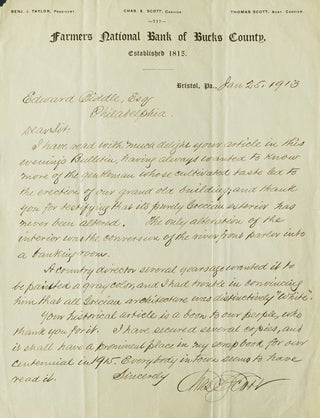 BENJ. J. TAYLOR, PRESIDENT. CHAS. E. SCOTT, CASHIER. THOMAS SCOTT, ASST. CASHIER.
—717—
Farmers National Bank of Bucks County,
Established 1815.
Bristol, Pa., Jan 25, 1913
Edward Biddle, Esq
Philadelphia.
Dear Sir:
I have read with much delight your article in this
evening's Bulletin, having always wanted to know
more of the gentleman whose cultivated taste led to
the erection of our grand old building, and thank
you for testifying that its purely Grecian exterior has
never been altered. The only alteration of the
interior was the conversion of the river front parlor into
a banking room.
A country director several years ago wanted it to
be painted a gray color, and I had trouble in convincing
him that all Grecian architecture was distinctively "White".
Your historical article is a boon to our people, who
thank you for it. I have secured several copies, and
it shall have a prominent place in my scrapbook for our
centennial in 1915. Everybody in town seems to have
read it. Sincerely
Chas E Scott